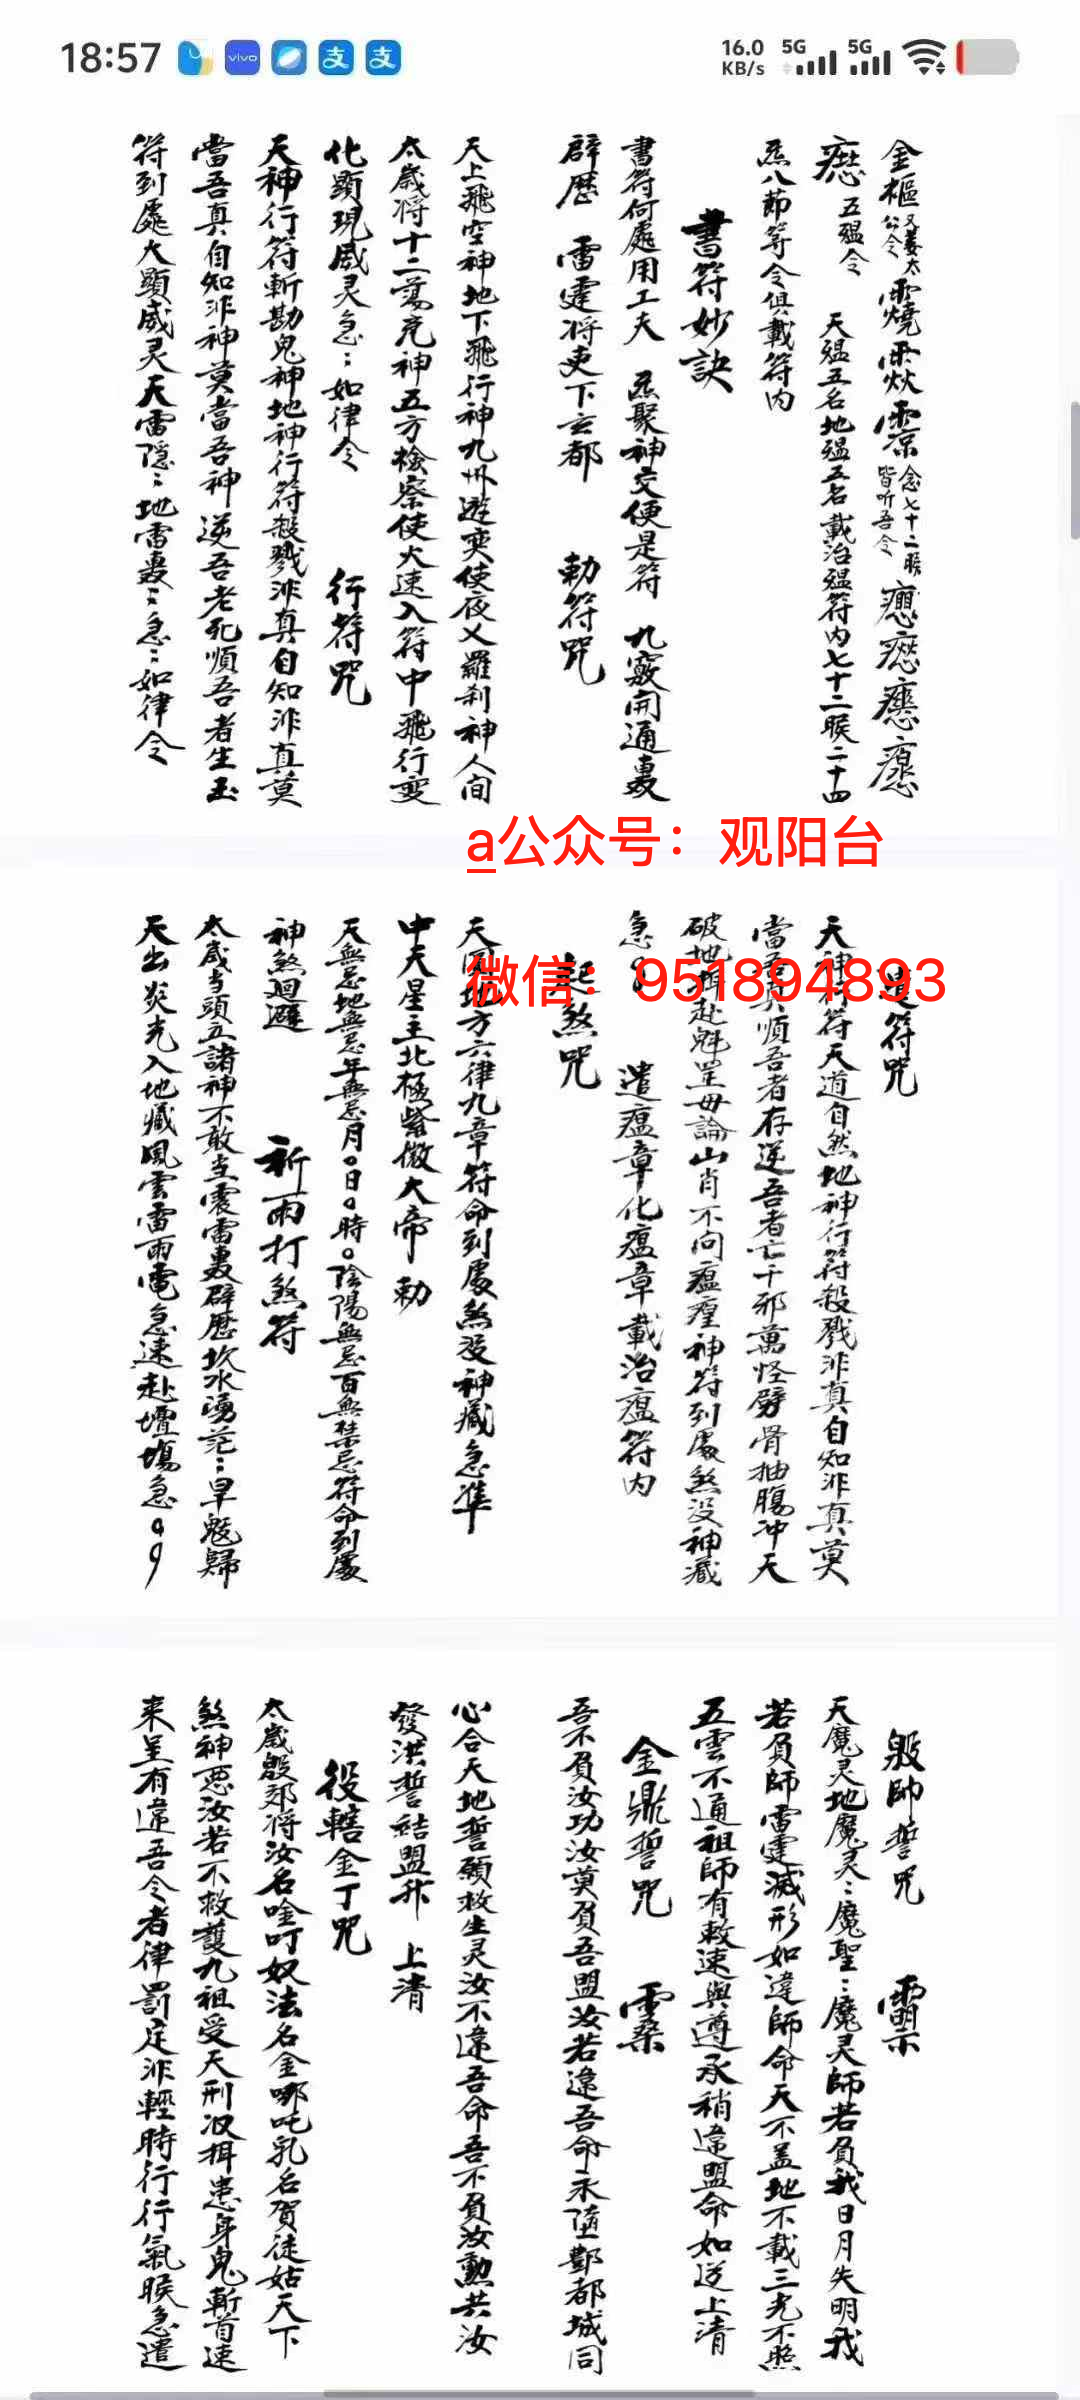 18:57
vivo
支
支
16.0
KB/s
5G
5G
金樞
又姜太
公令
念七十二睺
皆听吾令
五瘟令
天瘟五名地瘟五名載治瘟符内七十二睺二十四
炁八節等令俱載符内
書符妙訣
書符何處用工夫 炁聚神交便是符 九竅開通轟
辟歷 雷霆将吏下玄都
勅符咒
天上飛空神地下飛行神九州遊奕使夜乂羅刹神人间
太歲将十二蕩兇神五方檢察使火速入符中飛行变
化顯現威灵急:如律令
行符咒
天神行符斬勘鬼神地神行符殺戮非真自知非真莫
當吾真自知非神莫當吾神逆吾老死順吾者生玉
符到處大顯威灵天雷隱:地雷轟:急:如律令
a公众号：观阳台
微信：951894893
遣符咒
天神行符天道自然地神行符殺戮非真自知非真莫
當吾真順吾者存逆吾者亡千邪萬怪劈骨抽腸冲天
破地揖赴魁罡毋論山肖不问瘟瘟神符到處煞没神藏
急
遣瘟章化瘟章載治瘟符内
起煞咒
天圓地方六律九章符命到處煞没神藏急準
中天星主北極紫微大帝勅
天無忌地無忌年無忌月。日。時。陰陽無忌百無禁忌符命到處
神煞迴避
祈雨打煞符
太歲当頭立諸神不敢当震雷轟辟歷坎水湧茫:旱魃歸
天出炎光入地藏風雲雷雨電急速赴壇塲急
殷帥誓咒
天魔灵地魔灵:魔聖:魔灵師若負我日月失明我
若負師雷霆滅形如違師命天不盖地不載三光不照
五雲不通祖師有敕速與遵承稍違盟命如逆上清
金鼎誓咒
吾不負汝功汝莫負吾盟汝若違吾命永墮酆都城同
心合天地誓願救生灵汝不違吾命吾不負汝勲共汝
發洪誓結盟升 上清
役轄金丁咒
太歲殷郊将汝名唫叮奴法名金哪吒乳名賀徒姑天下
煞神惡汝若不救護九祖受天刑汝揖患身鬼斬首速
来呈有違吾令者律罰定非輕時行行氣睺急遣